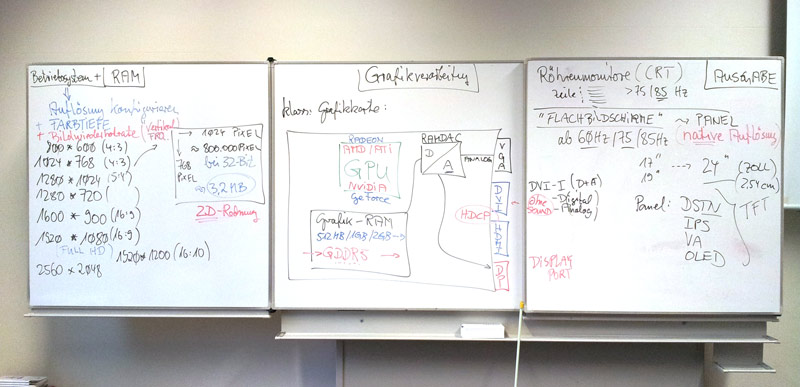 Betriebssystem + RAM
Auflösung konfigurieren
+ FARBTIEFE
+ Bildwiederholrate
vertikal
FRQ.
800 * 600 (4:3)
1024 * 768 (4:3)
1280 * 1024 (5:4)
1280 * 720
1600 * 900 (16:9)
1920 * 1080 (16:9)
(FULL HD)
1920 * 1200 (16:10)
2560 * 2048
1024 PIXEL
768
PIXEL
≈ 800.000 PIXEL
bei 32-Bit
≈ 3,2 MB
2D-Rechnung
Grafikverarbeitung
klass. Grafikkarte:
RADEON
AMD/ATI
GPU
NVIDIA
GeForce
RAMDAC
D
A
ANALOG
VGA
DVI
HDMI
DP
HDCP
Grafik-RAM
512MB/1GB/2GB
GDDR5
Röhrenmonitore (CRT)
Zeile:
> 75/85 Hz
AUSGABE
"FLACHBILDSCHIRME" → PANEL
ab 60Hz/75/85Hz
native Auflösung
17" ---> 24" (ZOLL)
19"
(2,54cm)
DVI-I (D+A)
- Digital
Analog
ohne
SOUND
Panel:
DSTN
IPS
VA
OLED
TFT
DISPLAY
PORT